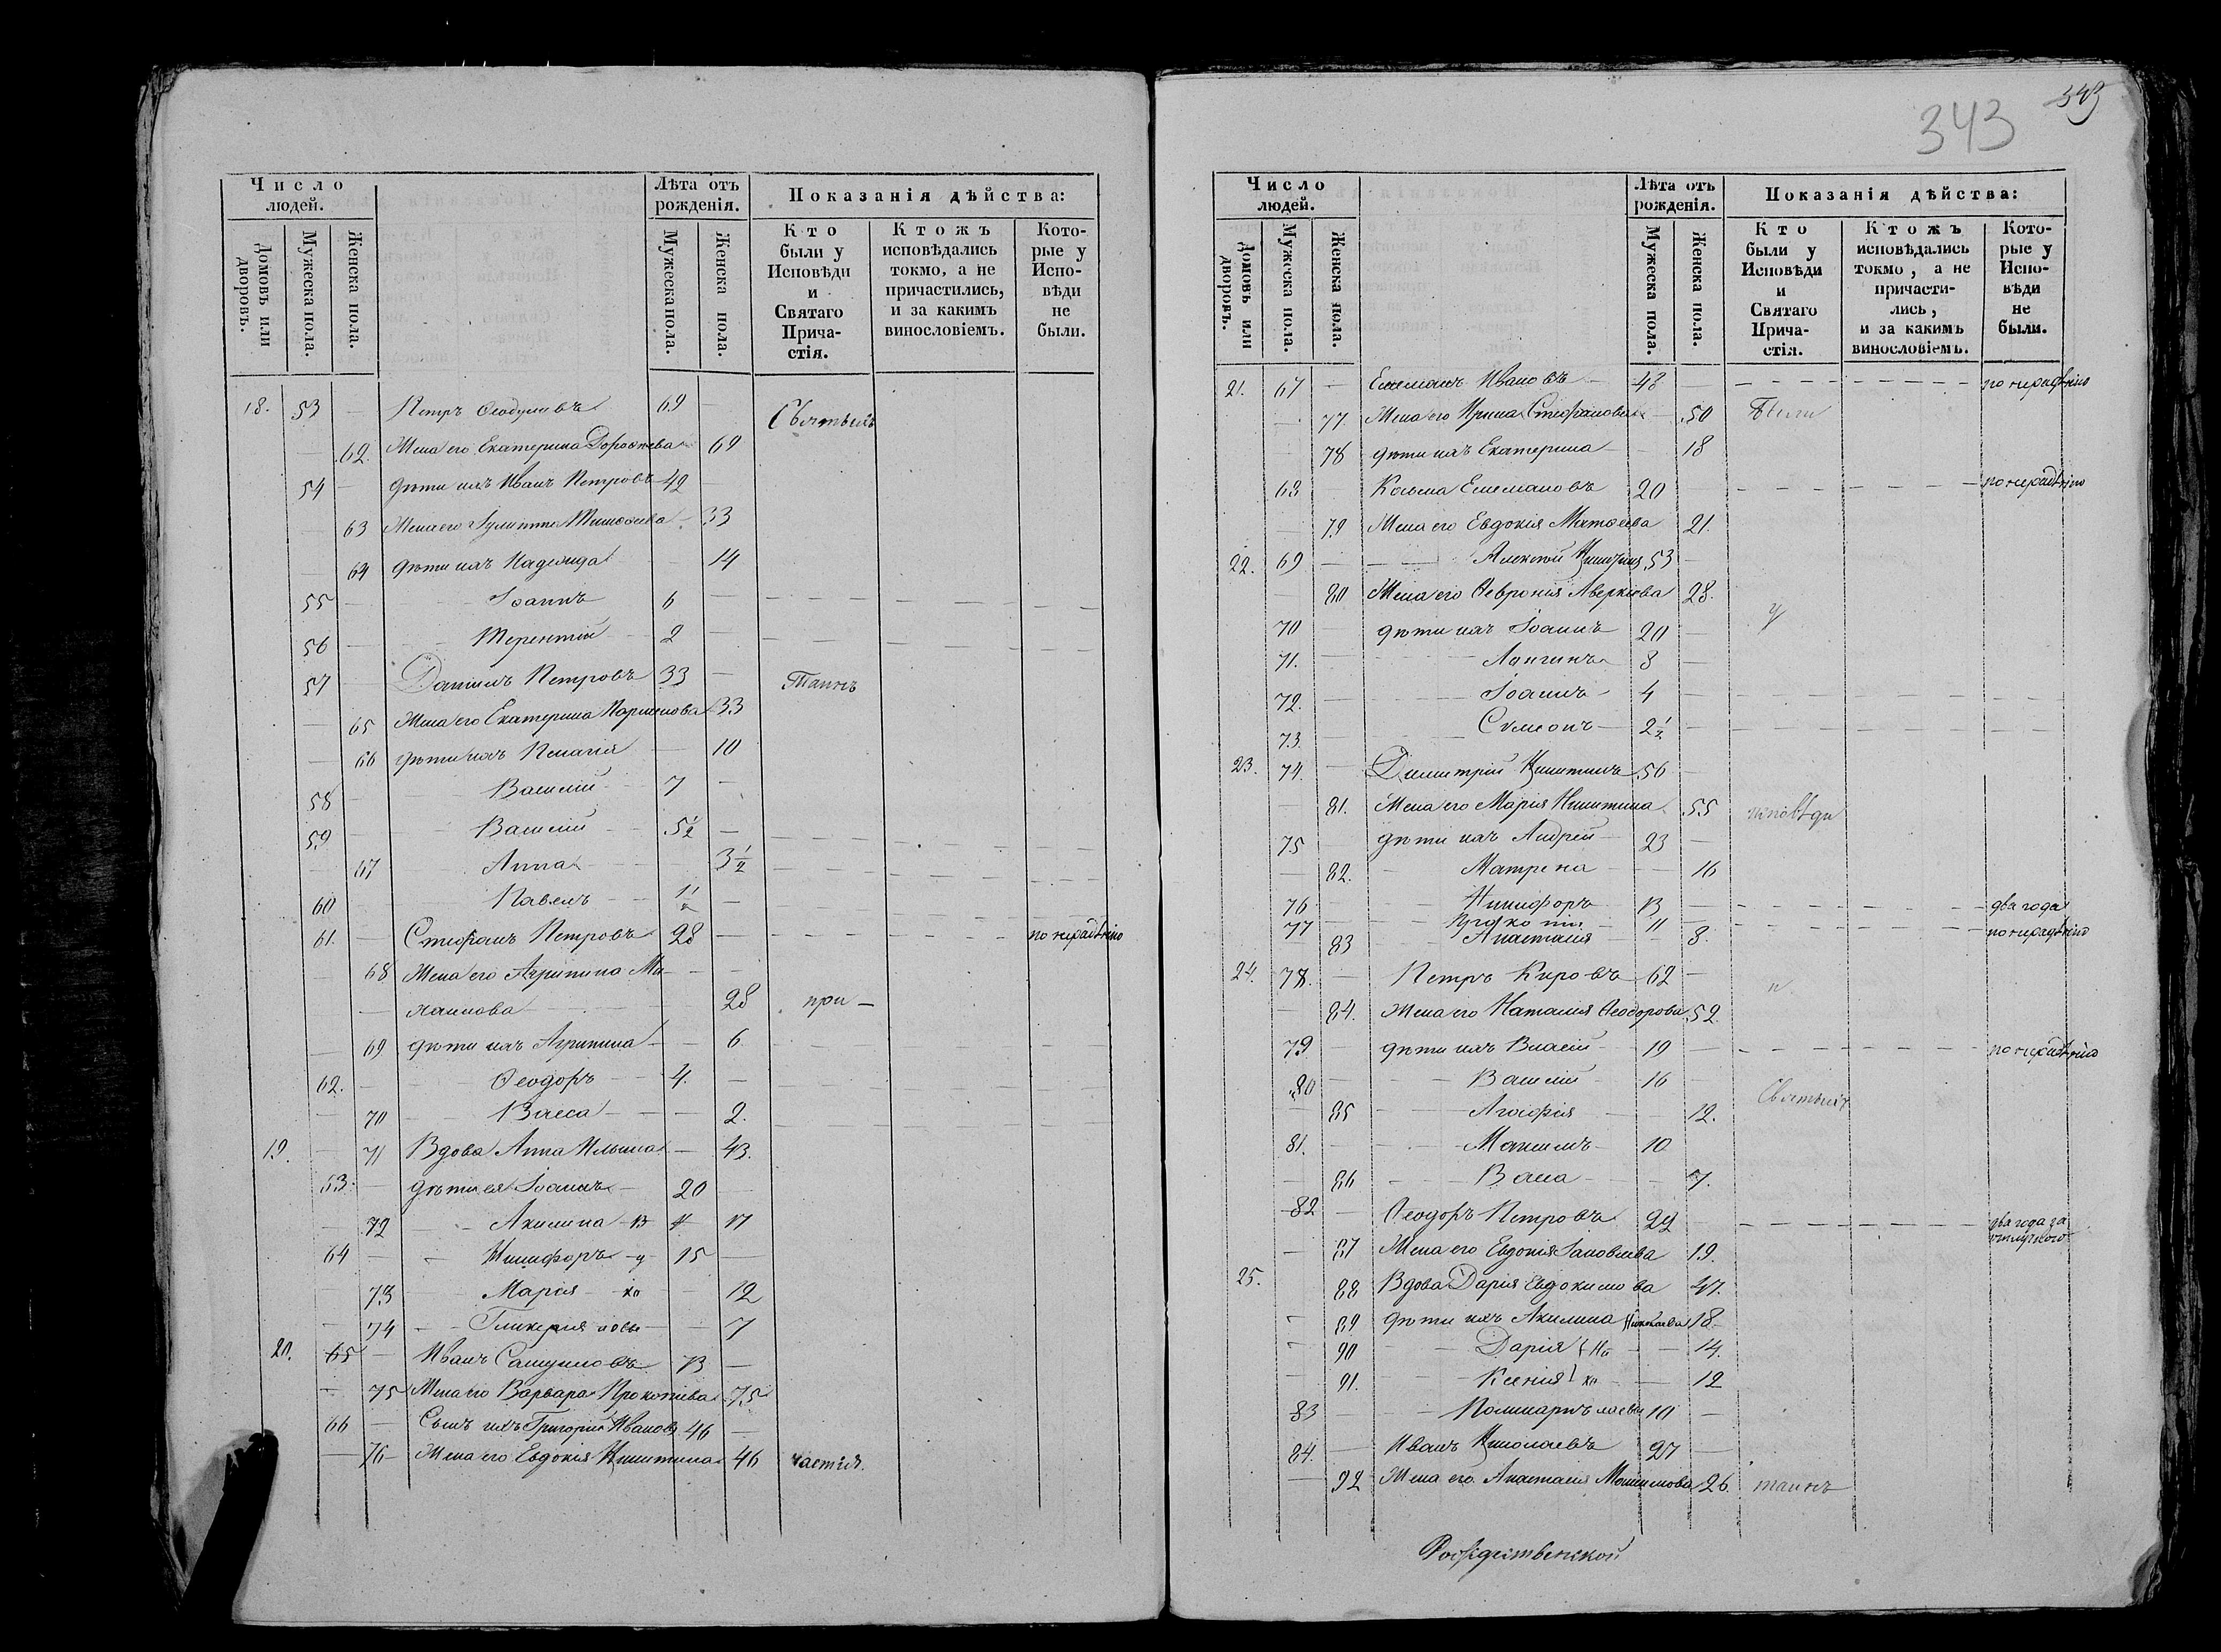 343
343
Число людей.
Лѣта отъ рожденія.
Показанія дѣйства:
Домовъ или дворовъ.
Мужеска пола.
Женска пола.
Мужеска пола.
Женска пола.
Кто были у Исповѣди и Святаго Прича-стія.
Ктожъ исповѣдались токмо, а не причастились, и за какимъ винословіемъ.
Кото-рые у Испо-вѣди не были.
18. 53 — Петръ Ѳеодуловъ 69 — Святыхъ
— 62. Жена его Екатерина Дорофеева 69
54 — дѣти ихъ Иванъ Петровъ 42 —
— 63 Жена его Іулитта 33
— 64 дѣти ихъ Надежда — 14
55 — Іоаннъ 6 —
56 — Терентій 2 —
57 — Даниилъ Петровъ 33 — Таинъ
— 65 Жена его Екатерина 33
— 66 дѣти ихъ Пелагія — 10
58 — Василій 7 —
59 — Василій 5½ —
— 67 Анна — 3½
60 — Павелъ 1½ —
61. — Стефанъ Петровъ 28 — по нерадѣнію
— 68 Жена его Агрипина Ми-
хаилова — 28 при —
— 69 дѣти ихъ Агрипина — 6
62. — Ѳеодоръ 4. —
— 70 Васса — 2.
19. — 71 Вдова Анна Ильина — 43.
63. — дѣти ея Іоаннъ 20 —
— 72 Акилина 17
64 — Никифоръ 15 —
— 73 Марія — 12
— 74 Гликерія — 7
20. 65 — Иванъ Самуиловъ 73 —
— 75 Жена его Варвара Прокопиева 75
66 — Сынъ ихъ Григорій Ивановъ 46 —
— 76 Жена его Евдокія Никитина 46 частія.
Число людей.
Лѣта отъ рожденія.
Показанія дѣйства:
Домовъ или дворовъ.
Мужеска пола.
Женска пола.
Мужеска пола.
Женска пола.
Кто были у Исповѣди и Святаго Прича-стія.
Ктожъ исповѣдались токмо, а не причасти-лись, и за какимъ винословіемъ.
Кото-рые у Испо-вѣди не были.
21. 67 — Емелианъ Ивановъ 48 — по нерадѣнію
— 77. Жена его Ирина Стефанова — 50 Были
78 дѣти ихъ Екатерина — 18
68 Козьма Емелиановъ 20 — по нерадѣнію
79 Жена его Евдокія Матфеева 21.
22. 69 — Алексей 53 —
80 Жена его Ѳеврония Аверкіева 28.
70 — дѣти ихъ Іоаннъ 20 — у
71. — Лонгинъ 8 —
72. — Іоаннъ 4 —
73. — Сѵмеонъ 2½ —
23. 74. — Димитрій Никитинъ 56 —
— 81. Жена его Марія Никитина 55 исповѣди
75 дѣти ихъ Андрей 23 —
— 82. Матрена — 16
76 — Никифоръ 13 — два года
77 — 11 — по нерадѣнію
83 Анастасія — 8.
24. 78. — Петръ Кировъ 62 — и
— 84. Жена его Наталия Ѳеодорова 52.
79 — дѣти ихъ Власій 19 — по нерадѣнію
80 — Василій 16 — Святыхъ
— 85 Агафія — 12.
81. — Максимъ 10
— 86 Васса — 7.
82 — Ѳеодоръ Петровъ 22 — два года за отлучкою
— 87 Жена его Евдокія 19.
25. 88 Вдова Дарія Евдокимова 47.
89 дѣти ихъ Акилина 18
90 Дарія Ни — 14.
91. Ксенія ко — 12
83 Поликарпъ лаевы 10 —
84. — Иванъ Николаевъ 27 —
— 92 Жена его Анастасія Максимова 26. таинъ
Рождественской